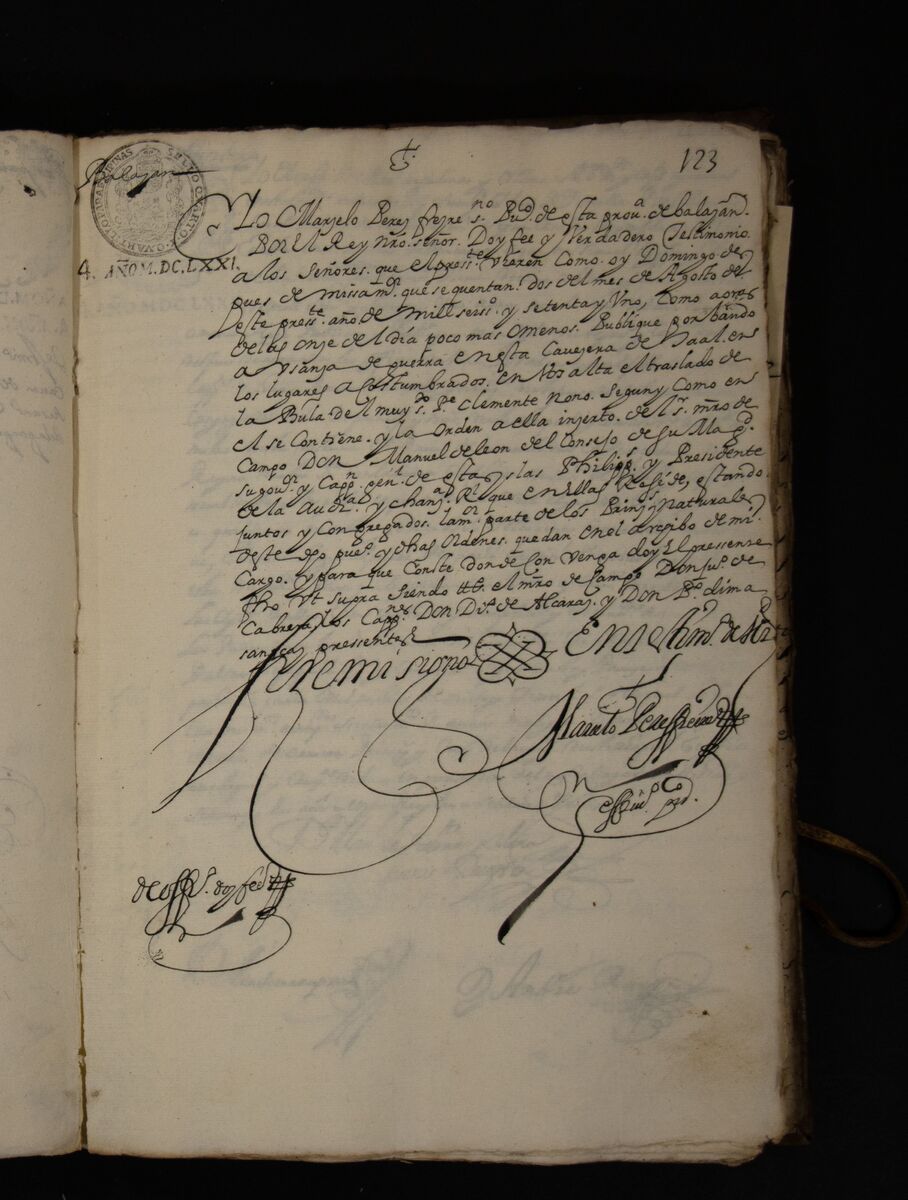 123
Balajan
SELLO QUARTO
4. AÑO M.DC.LXXI.
Yo Marzelo Perez freyre s.no Puco de esta prou.a de balajan.
POR El Rey Nro. señor. Doy fee y Verdadero Testimonio.
a los Señores que el press.te Vieren Como oy Domingo des
pues de missa mor. que se quentan. Dos del mes de Agosto del
este press.te año de mill seiss.o y setenta y Uno, Como a oras
de las onze del dia poco mas o menos. Publique por Bando
a Vsanza de guerra en esta Cauezera de Taal. en
los lugares acostumbrados. en Voz alta el traslado de
la Bula del muy s.do P.e Clemente Nono. Segun y Como en
el se Contiene. y la orden a ella injerto. del s.r mro de
Campo DON Manuel de leon del Consejo de Su Mag.d
su gou.or y Capp.n gen.l de estas yslas Philipp.s y Presidente
de la Aud.a y chanz.a R.l que en ellas Reside, estando
juntos y Congregados. la m.or parte de los Prinz.s Naturales
de este dho pue.o y dhas ordenes. quedan en el archibo de mi
Cargo. y para que Conste donde Con Venga doy El pressente
fho Vt supra siendo tt.o el mro de Campo Don Ju.o de
Cabrera los Capp.nes DON Di.o de Alcaraz. y Don P.o dima
sangca, pressentes
hize mi signo En testim.o de Verd
Marzelo Perez freyre
ess.no pu.co
de off.o doy fee